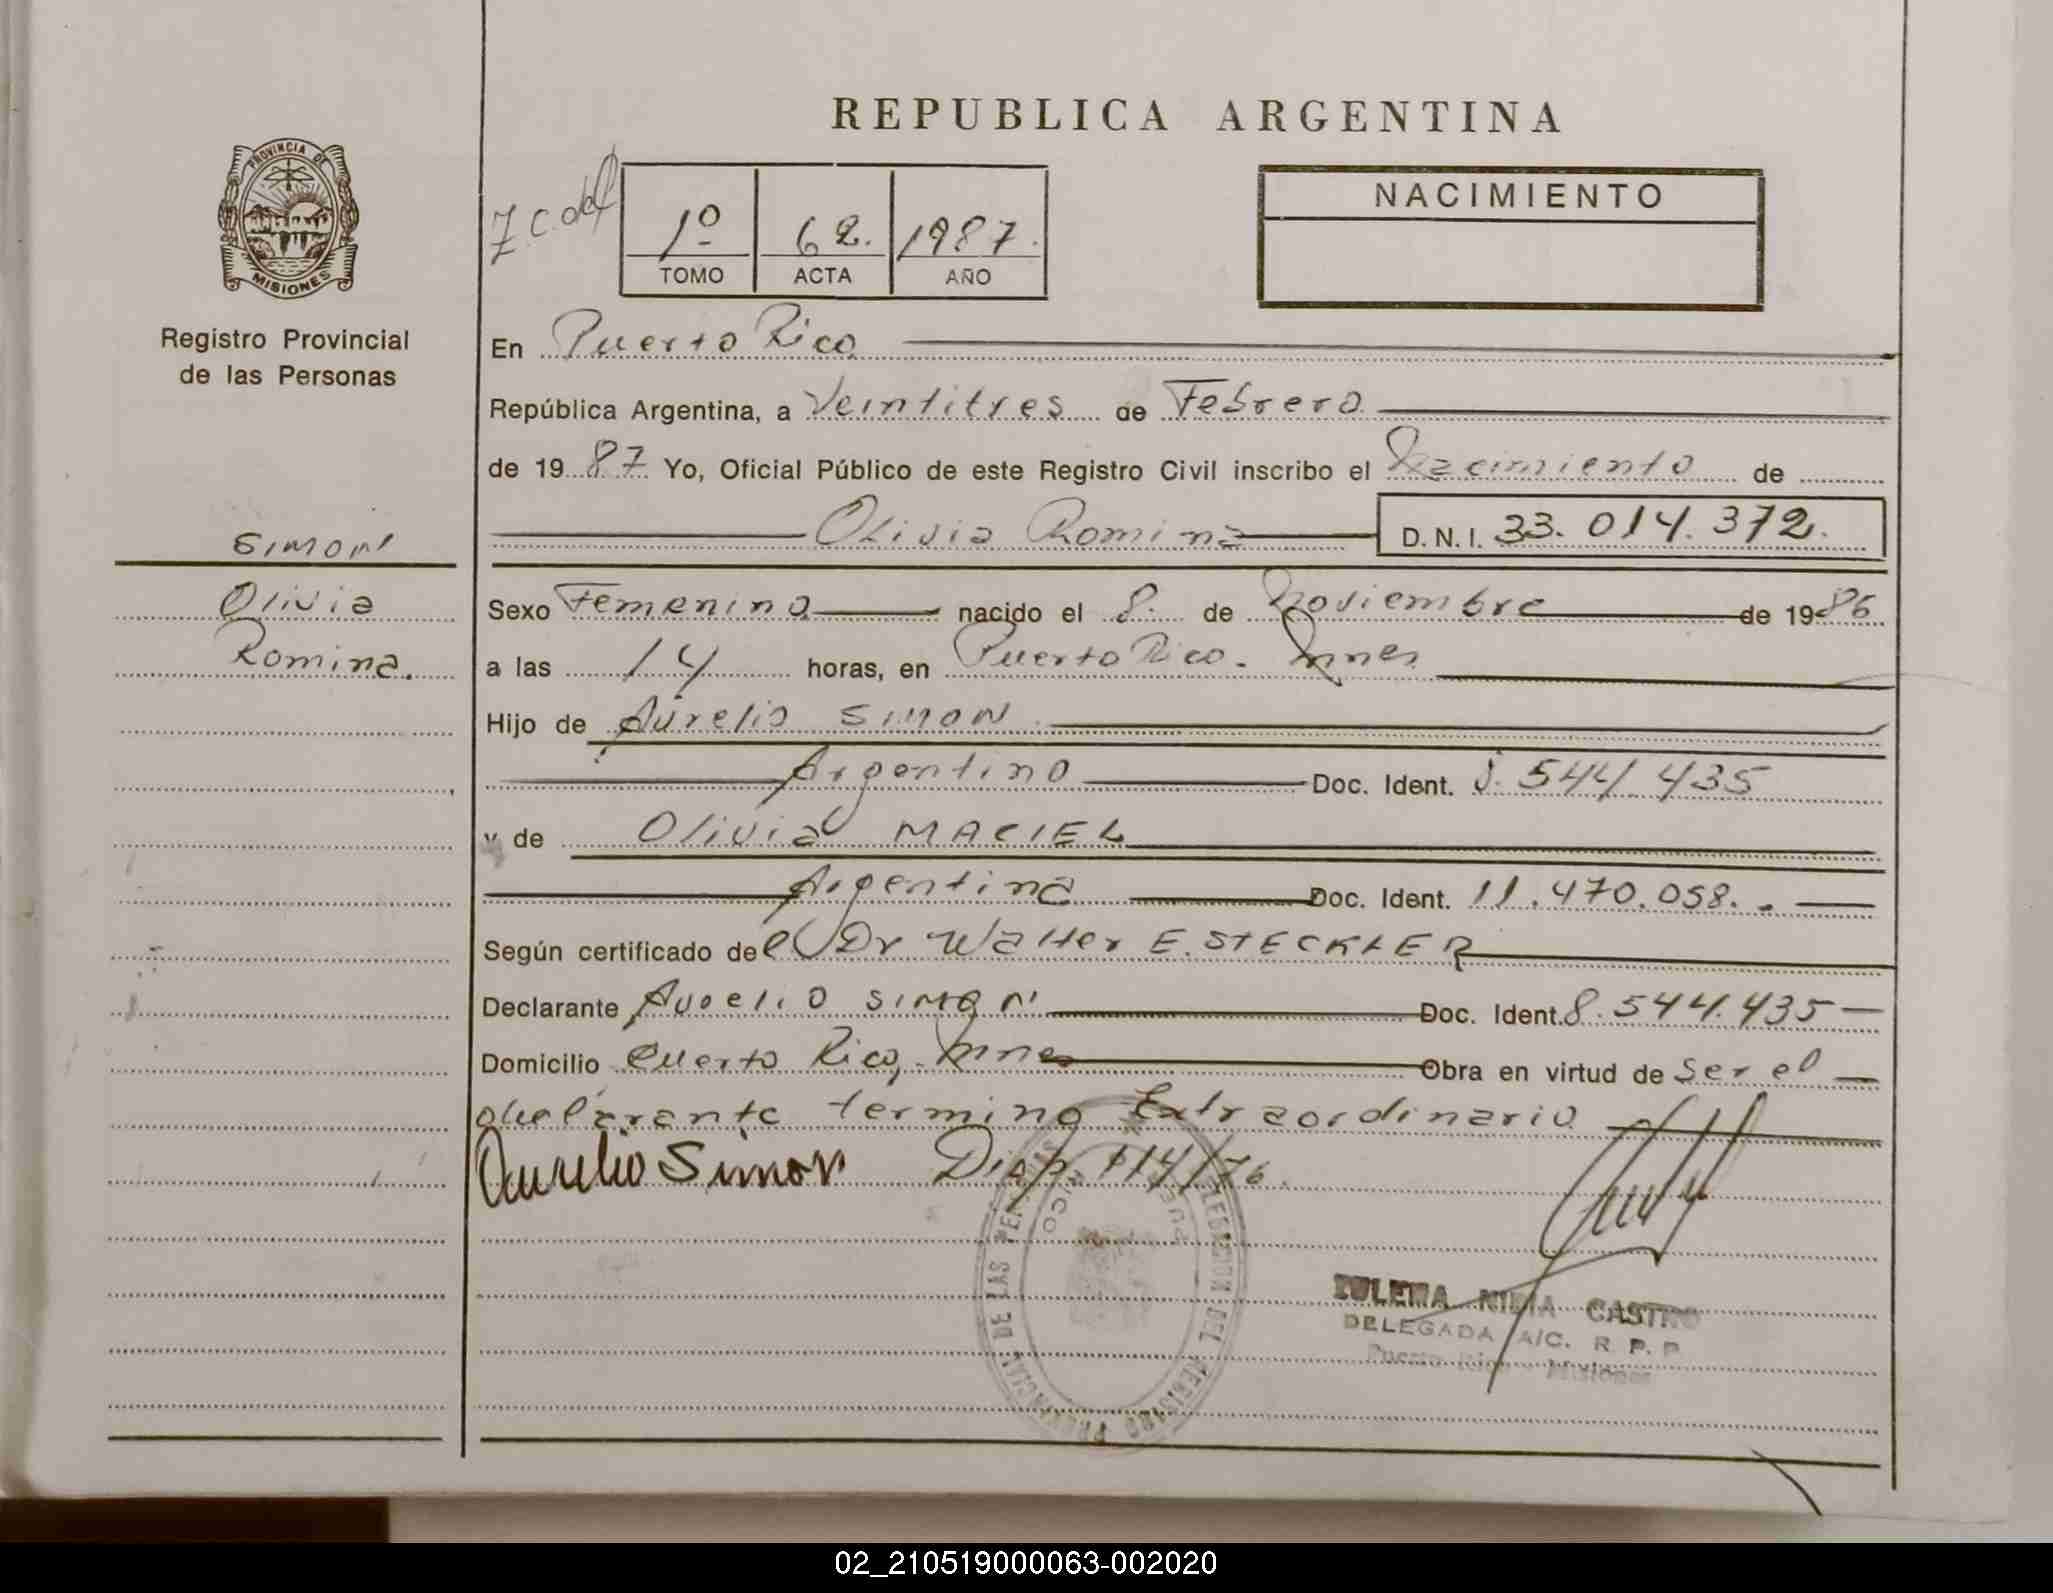 REPUBLICA ARGENTINA
PROVINCIA DE
MISIONES
Registro Provincial
de las Personas
1º 62. 1987.
TOMO ACTA AÑO
NACIMIENTO
En Puerto Rico
República Argentina, a Veintitres de Febrero
de 19 87 Yo, Oficial Público de este Registro Civil inscribo el Nacimiento de
Olivia Romina D.N.I. 33.014.372.
SIMON
Olivia
Romina.
Sexo Femenino nacido el 8. de Noviembre de 19 86
a las 14 horas, en Puerto Rico. Mnes
Hijo de Aurelio SIMON
Argentino Doc. Ident. 8.544.435
y de Olivia MACIEL
Argentina Doc. Ident. 11.470.058.
Según certificado del Dr Walter E. STECKLER
Declarante Aurelio SIMON Doc. Ident. 8.544.435
Domicilio Puerto Rico, Mnes Obra en virtud de Ser el
declarante termino Extraordinario
Aurelio Simon Disp 114/76.
DELEGACION DEL REGISTRO PROVINCIAL DE LAS PERSONAS
PUERTO RICO
ZULEMA NIDIA CASTRO
DELEGADA A/C. R. P. P.
Puerto Rico - Misiones
02_210519000063-002020